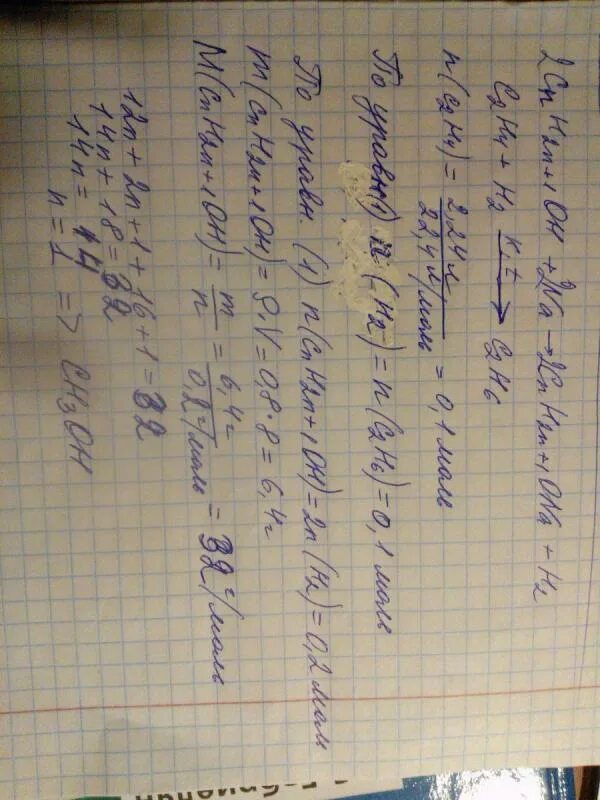 2CnH2n+1OH + 2Na → 2CnH2n+1ONa + H2
C2H4 + H2 →(к, t) C2H6
n(C2H4) = 2,24 л / 22,4 л/моль = 0,1 моль
По уравн(1) n (H2) = n(C2H6) = 0,1 моль
По уравн. (1) n(CnH2n+1OH) = 2n(H2) = 0,2 моль
m(CnH2n+1OH) = ρ·V = 0,8·8 = 6,4г
M(CnH2n+1OH) = m/n = 6,4г / 0,2 моль = 32 г/моль
12n + 2n + 1 + 16 + 1 = 32
14n + 18 = 32
14n = 14
n = 1 => CH3OH